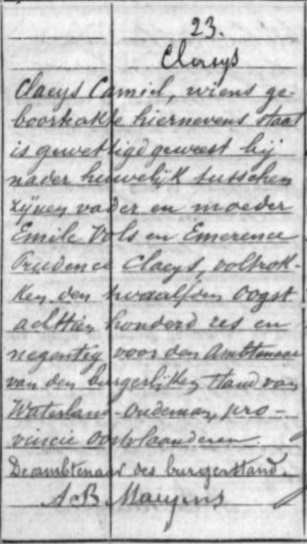 23.
Claeys
Claeys Camiel, wiens ge-
boorteakte hiernevens staat
is gewettigd geweest bij
nader huwelijk tusschen
zijnen vader en moeder
Emile Vols en Emerence
Prudence Claeys, voltrok-
ken den twaalfden Oogst
achttien honderd zes en
negentig voor den ambtenaar
van den burgerlijken stand van
Waterland-Oudeman, pro-
vincie Oostvlaanderen.
De ambtenaar des burgerstand.